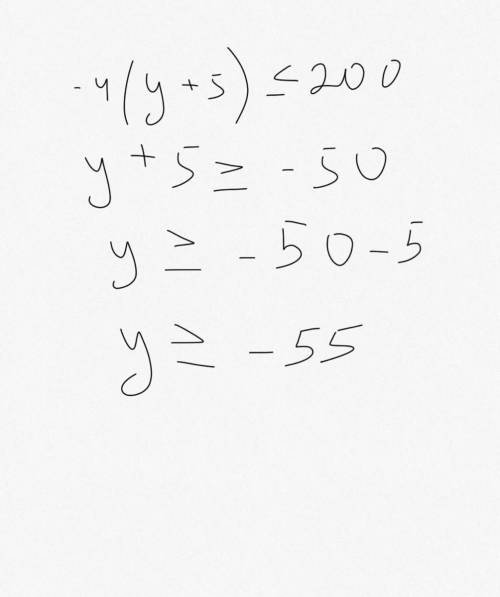 -4(y+5)≤200
y+5≥-50
y≥-50-5
y≥-55